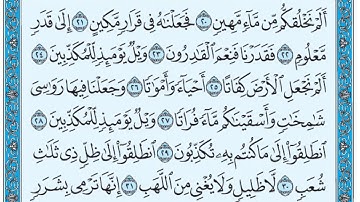 أَلَمْ نَخْلُقكُّم مِّن مَّاءٍ مَّهِينٍ ٢٠ فَجَعَلْنَاهُ فِي قَرَارٍ مَّكِينٍ ٢١ إِلَىٰ قَدَرٍ
مَّعْلُومٍ ٢٢ فَقَدَرْنَا فَنِعْمَ الْقَادِرُونَ ٢٣ وَيْلٌ يَوْمَئِذٍ لِّلْمُكَذِّبِينَ ٢٤
أَلَمْ نَجْعَلِ الْأَرْضَ كِفَاتًا ٢٥ أَحْيَاءً وَأَمْوَاتًا ٢٦ وَجَعَلْنَا فِيهَا رَوَاسِيَ
شَامِخَاتٍ وَأَسْقَيْنَاكُم مَّاءً فُرَاتًا ٢٧ وَيْلٌ يَوْمَئِذٍ لِّلْمُكَذِّبِينَ ٢٨
انطَلِقُوا إِلَىٰ مَا كُنتُم بِهِ تُكَذِّبُونَ ٢٩ انطَلِقُوا إِلَىٰ ظِلٍّ ذِي ثَلَاثِ
شُعَبٍ ٣٠ لَّا ظَلِيلٍ وَلَا يُغْنِي مِنَ اللَّهَبِ ٣١ إِنَّهَا تَرْمِي بِشَرَرٍ